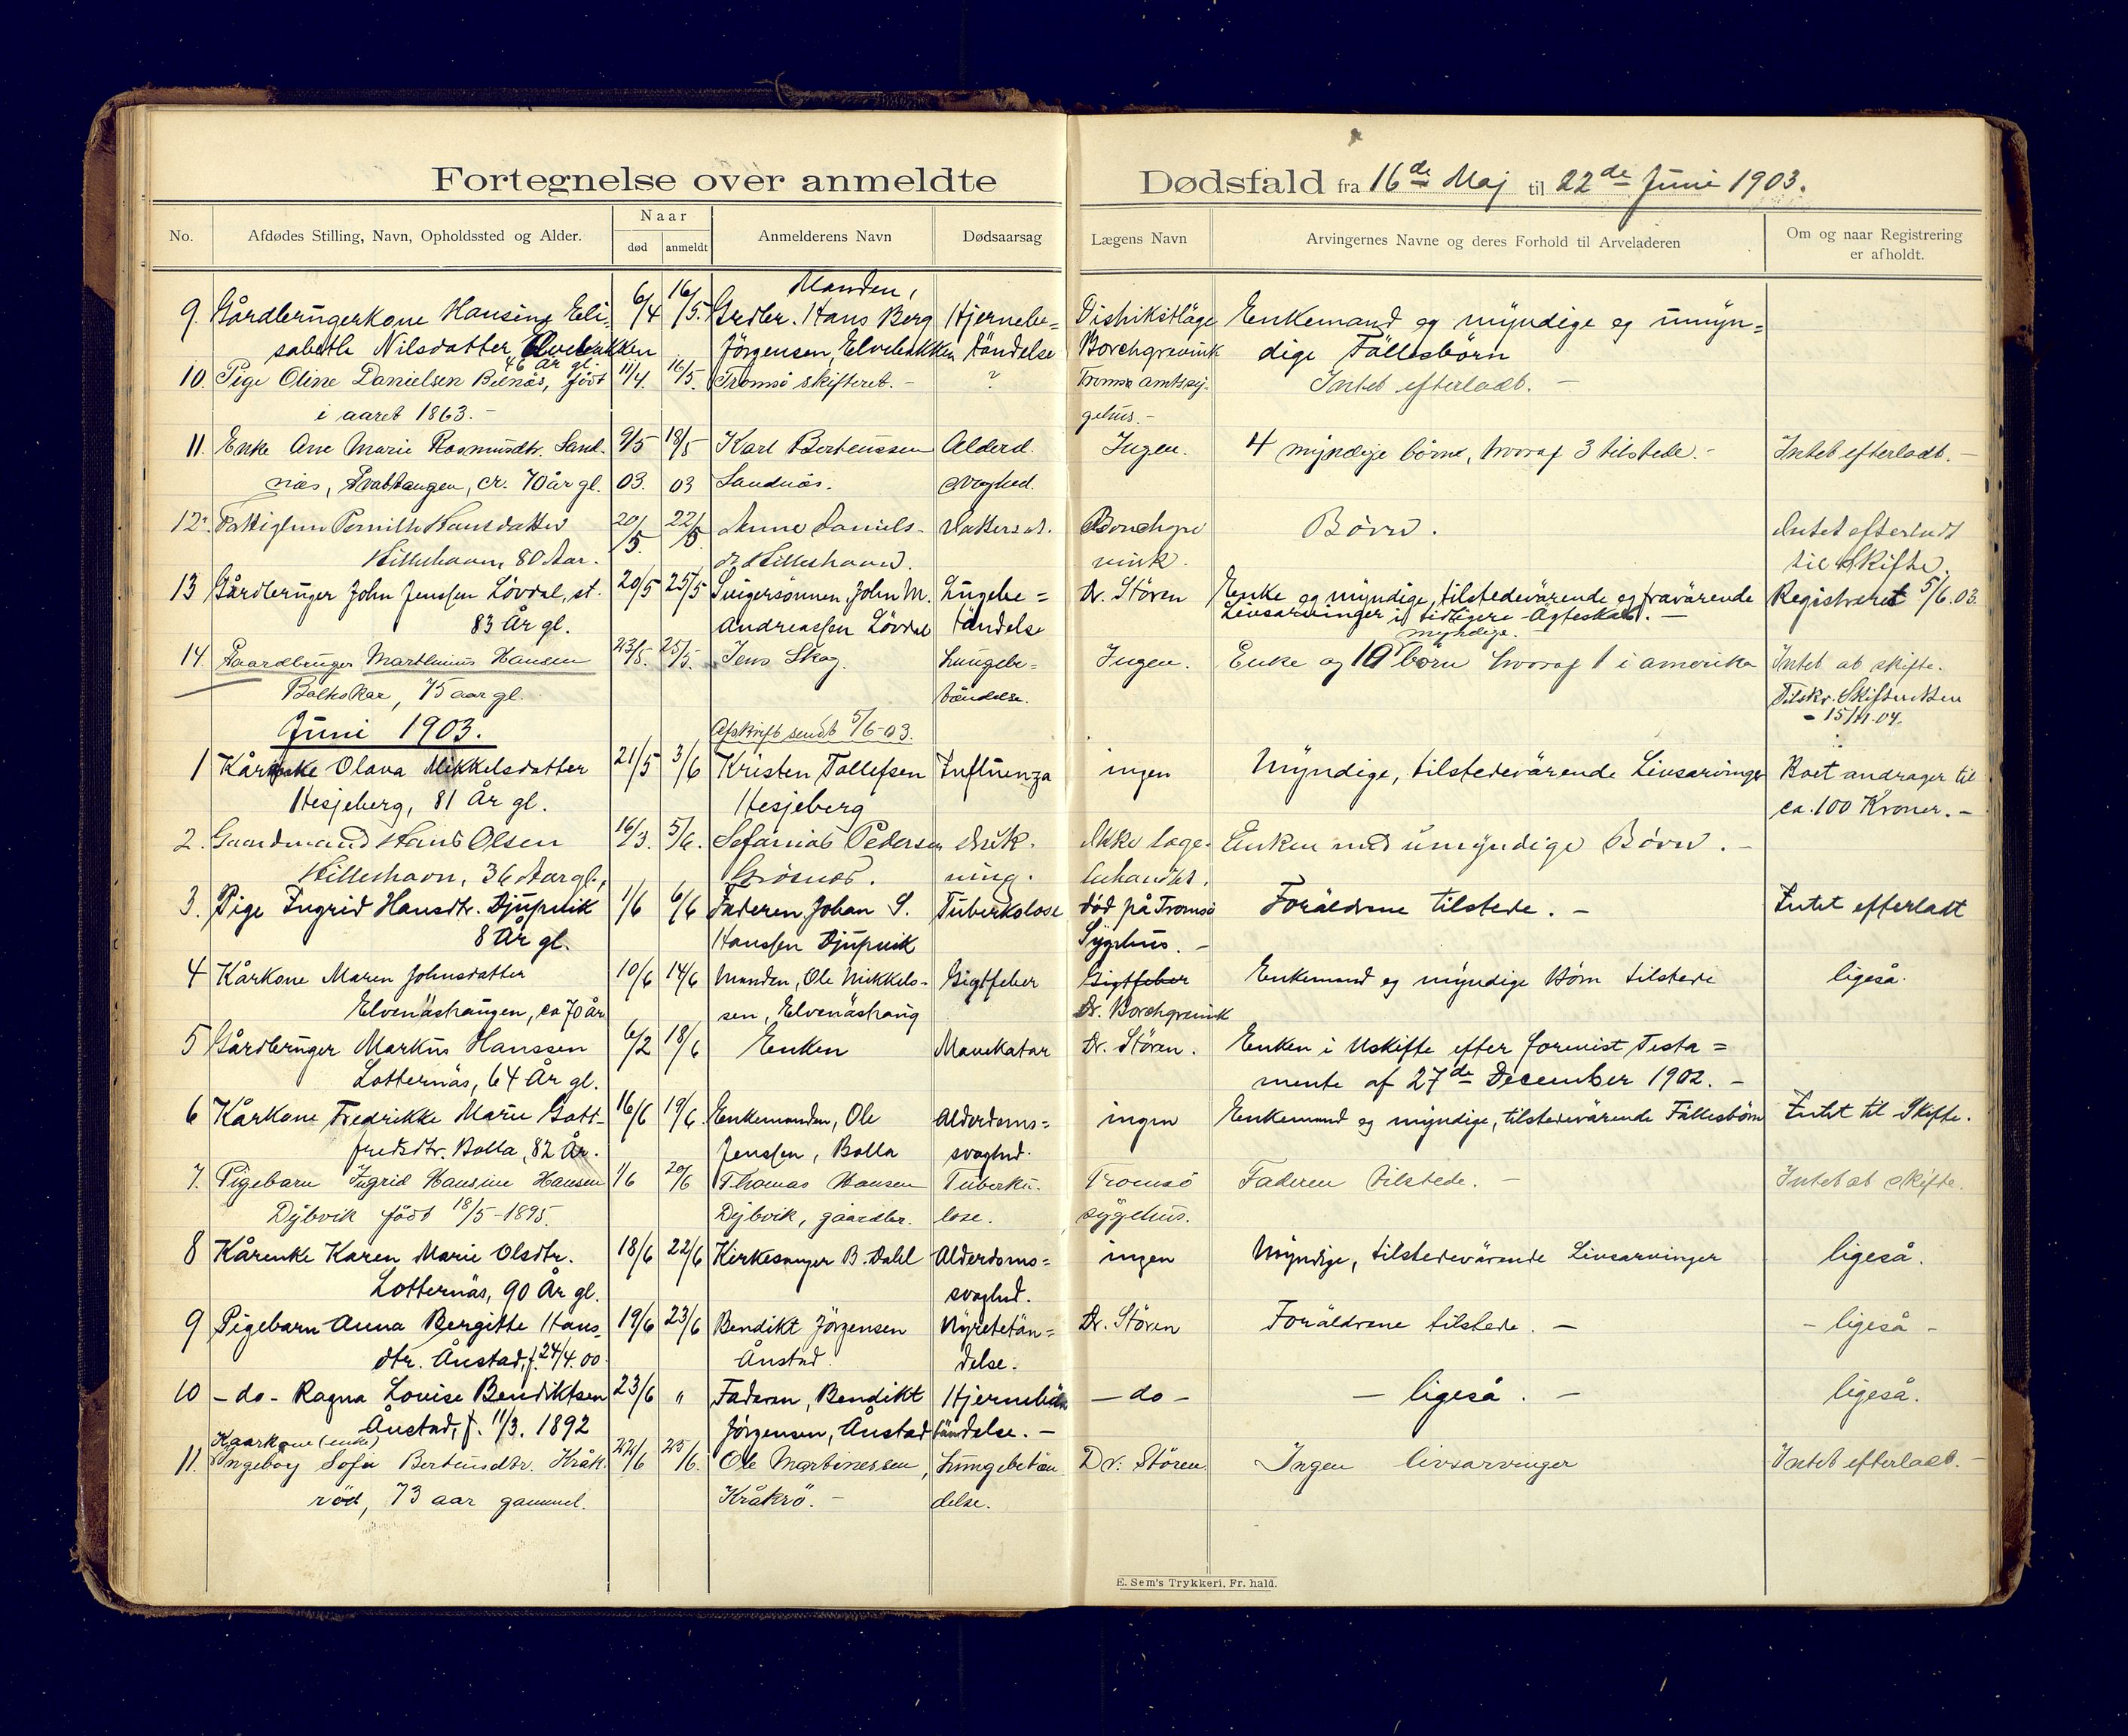 Fortegnelse over anmeldte Dødsfald fra 16de Maj til 22de Juni 1903.
No. Afdødes Stilling, Navn, Opholdssted og Alder. Naar død anmeldt Anmelderens Navn Dødsaarsag Lægens Navn Arvingernes Navne og deres Forhold til Arveladeren Om og naar Registrering er afholdt.
Manden,
9. Gårdbrugerkone Hansine Eli- 6/4 16/5. Grdbr. Hans Berg Hjernebe= Distriktsläge Enkemand og myndige og umyn=
sabeth Nilsdatter, Elvebakken Jörgensen, Elvebakken tändelse Borchgrevink dige Fällesbörn
46 år gl.
10. Pige Oline Danielsen födt 11/4. 16/5. Tromsö skifteret. - ? Tromsø amtssy- Intet efterladt. -
i aaret 1863. - gehus. -
11. Enke Ane Marie Rasmusdtr. Sand- 9/5 18/5 Karl Berteussen Alderd. Ingen. 4 myndige börn, hvoraf 3 tilstede. - Intet efterladt. -
näs, cr. 70 år gl. 03. 03 Sandnäs. svaghed.
12. Pernille Hansdatter 20/5. 22/5 Anne Daniels- Borchgre Børn. Intet efterladt
Hilleshavn, 80 Aar. dr Hilleshavn. vink. til Skifte.
13 Gårdbruger John Jenssen Lövdal, st. 20/5 25/5 Svigersönnen, John M. Lungebe= Dr. Stören Enke og myndige, tilstedevärende og fravärende Registreret 5/6.03
83 År gl. Andreassen Lövdal tändelse Livsarvinger i tidligere Ägteskab. -
myndige.
14. Gaardbruger Marthinus Hansen 23/5. 25/5. Jens Skog. Lungebe- Ingen. Enke og 10 börn hvoraf 1 i amerika Intet at skifte.
Baltskar, 75 aar gl. tändelse. Tilskr. Skifteretten
- 15/11.04.
Juni 1903. Afskrift sendt 5/6-03.
1 Kårenke Olava Mikkelsdatter 21/5 3/6 Kristen Tollefsen Influenza ingen Myndige, tilstedevärende Livsarvinger Boet andrager til
Hesjeberg, 81 År gl. Hesjeberg ca. 100 Kroner. -
2. Gaardmand Hans Olsen 16/3. 5/6. Sefanias Pedersen Druk- Ikke läge- Enken med umyndige Børn. -
Hilleshavn, 36 Aar gl., Grøsnes. ning. behandlet.
3. Pige Ingrid Hansdtr. Djupvik 1/6 6/6 Faderen, Johan S. Tuberkolose död på Tromsö Foräldrene tilstede. - Intet efterladt
8 År gl. Hanssen Djupvik Sygehus. -
4 Kårkone Maren Johnsdatter 10/6 14/6 Manden, Ole Mikkels- Gigtfeber Gigtfeber Enkemand og myndige Börn tilstede ligeså.
Elvenästrangen, ca 70 år sen, Elvenästrang Dr. Borchgrevink
5 Gårdbruger Markus Hanssen 6/2 18/6 Enken Mavekatar Dr. Stören. Enken i Uskifte efter forevist Testa=
Lotternäs, 64 År gl. mente af 27de December 1902. -
6 Kårkone Fredrikke Marie Gott- 16/6 19/6. Enkemanden, Ole Alderdoms= ingen Enkemand og myndige, tilstedevärende Fällesbörn Intet til Skifte.
fredsdtr. Bolla, 82 År. Jenssen, Bolla svaghed.
7. Pigebarn Ingrid Hansine Hansen 1/6 20/6 Thomas Hansen Tuberku- Tromsö Faderen tilstede. - Intet at skifte.
Dybvik födt 18/5-1895. Dybvik, gaardbr. lose. sygehus.
8 Kårenke Karen Marie Olsdtr. 18/6 22/6 Kirkesanger B. Dahl Alderdoms= ingen Myndige, tilstedevärende Livsarvinger ligeså.
Lotternäs, 90 År gl. svaghed.
9 Pigebarn Anna Bergitte Hans- 19/6 23/6 Bendikt Jörgensen Nyretetän= Dr. Stören Foräldrene tilstede. - - ligeså -
dtr. Ånstad, f. 24/4.00. Ånstad. delse.
10 - do - Ragna Louise Bendiktsen 23/6 " Faderen, Bendikt Hjernebe - do - - ligeså. - ligeså.
Ånstad, f. 11/3. 1892 Jörgensen, Ånstad tändelse. -
Kaarkone (enke)
11. Ingeborg Sofie Berteusdtr. Kråk- 22/6 25/6. Ole Martinessen, Lungebetän Dr. Stören. Ingen livsarvinger Intet efterladt. -
röd, 73 aar gammel. Kråkrö. - delse.
E. Sem's Trykkeri, Fr. hald.